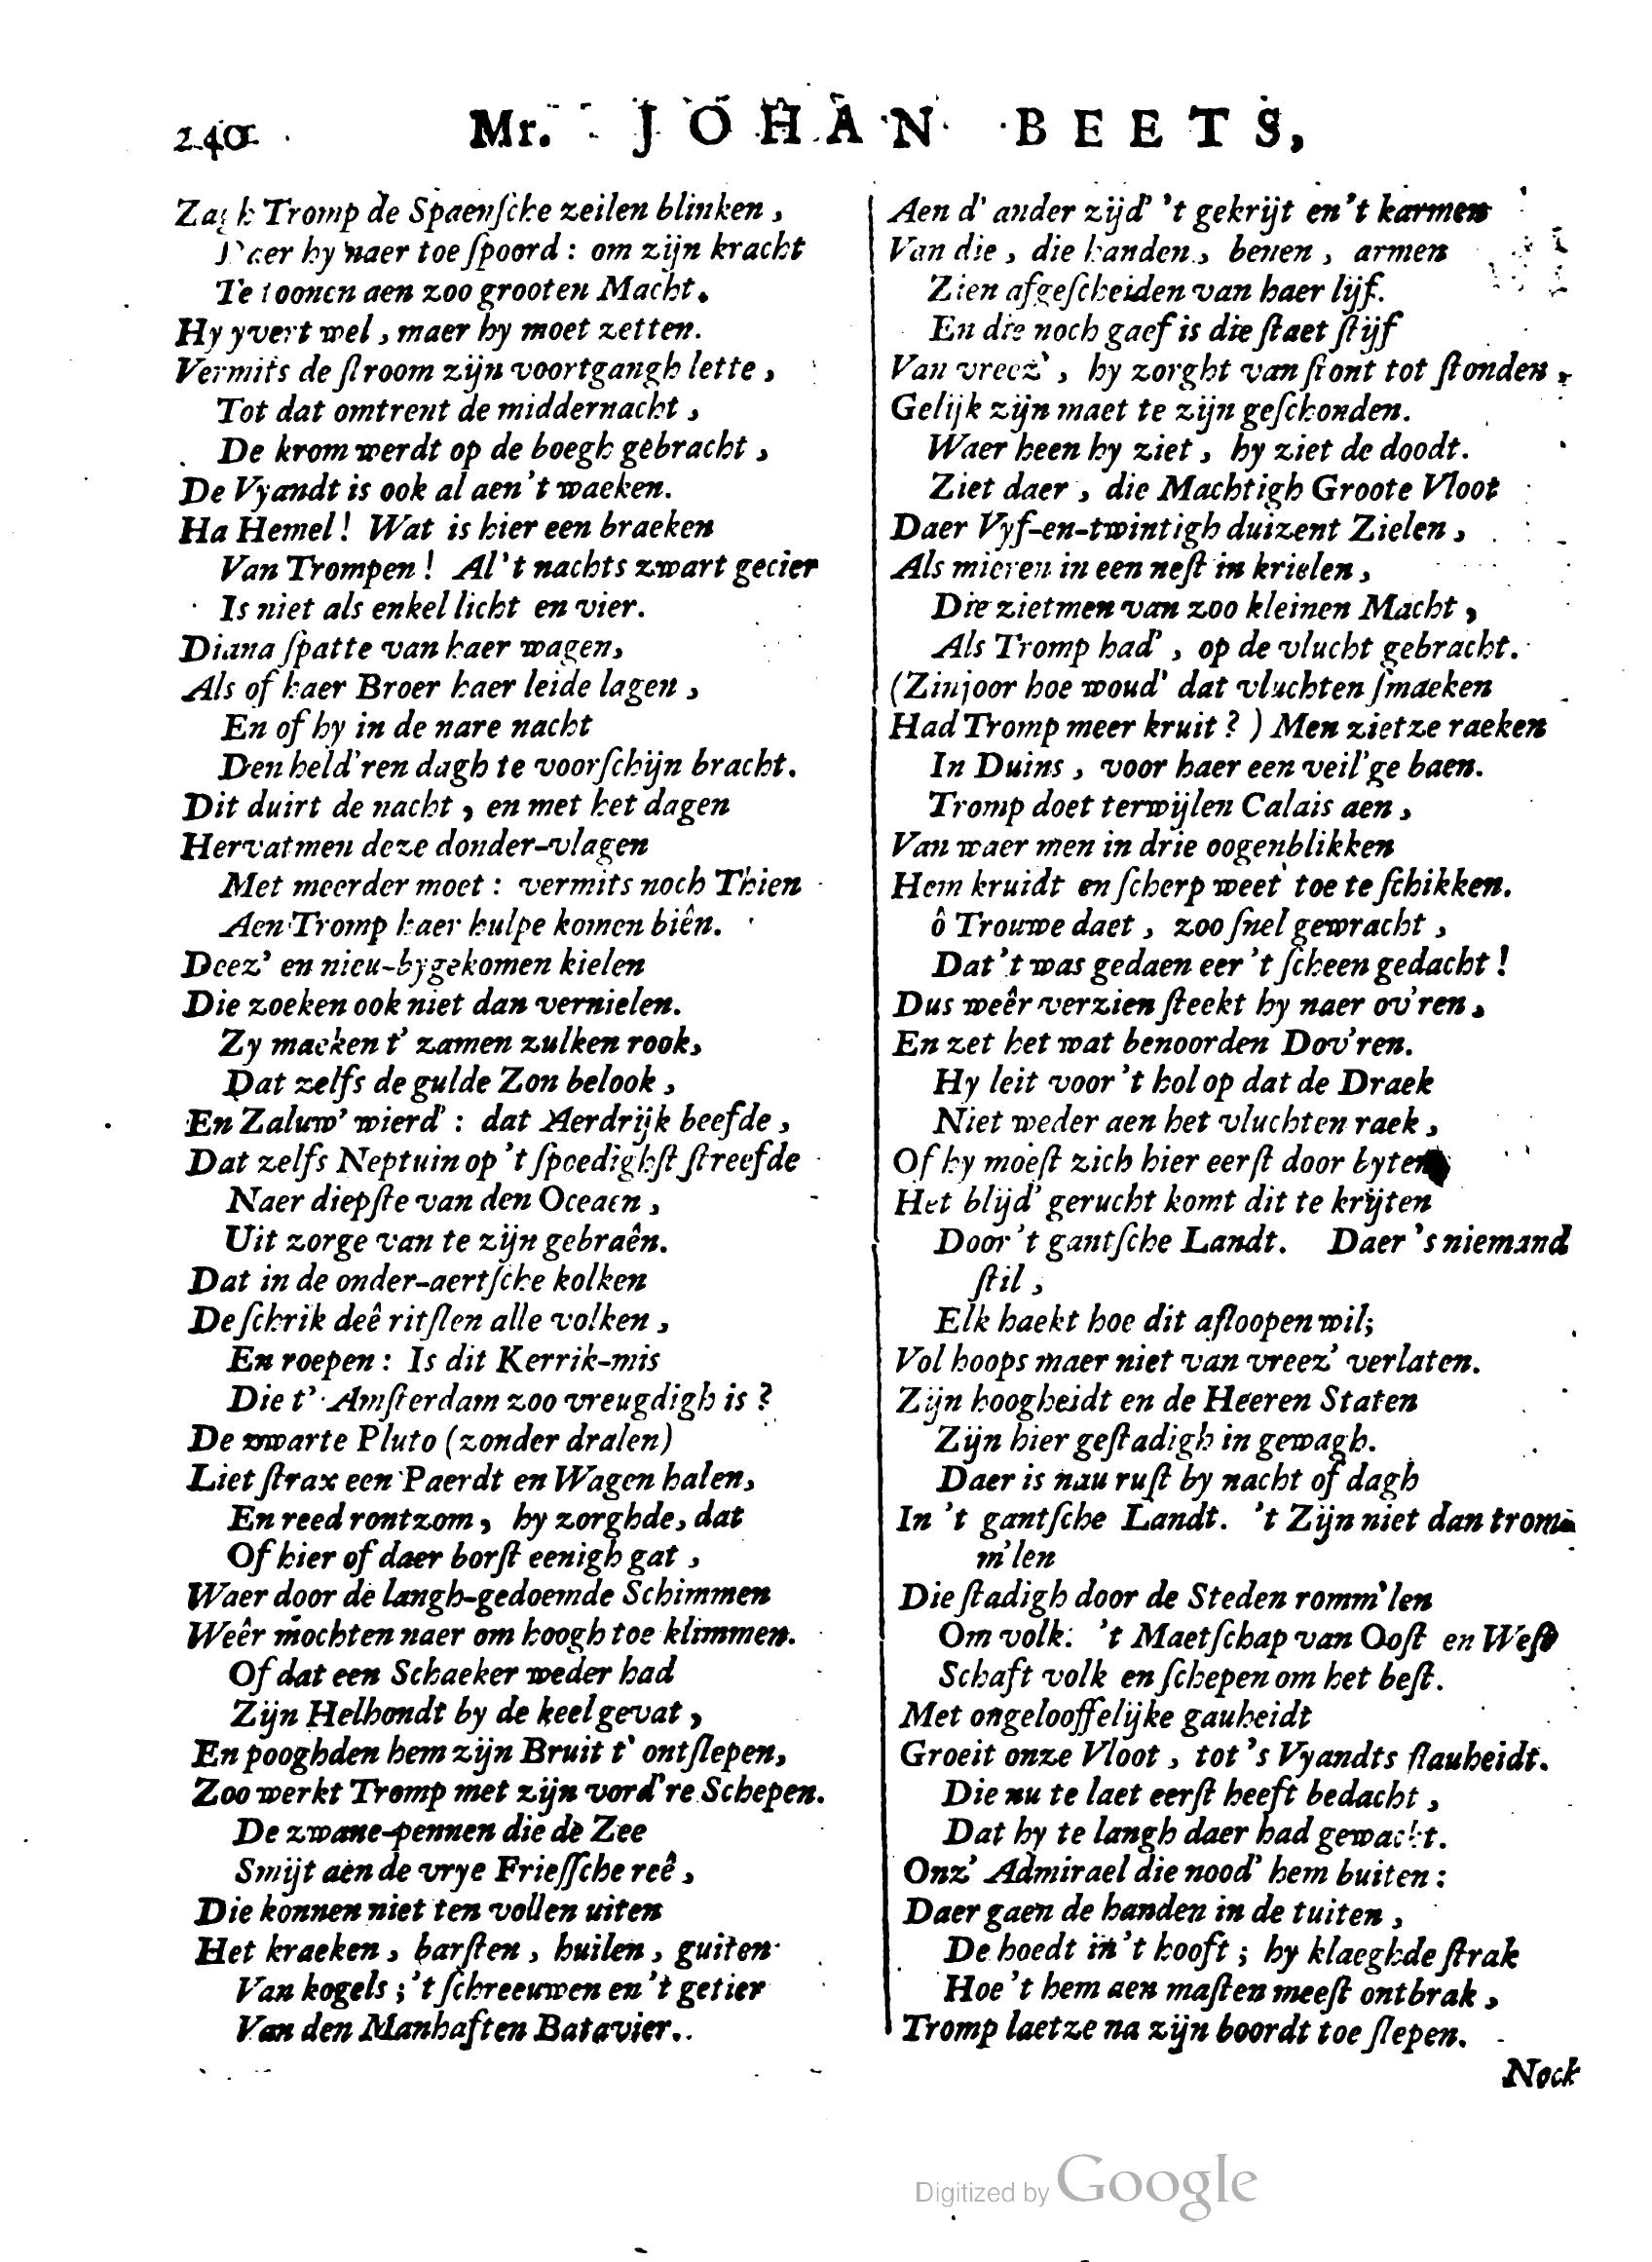 240
Mr. JOHAN BEETS,
Zagh Tromp de Spaenſche zeilen blinken,
Daer hy naer toe ſpoord: om zijn kracht
Te toonen aen zoo grooten Macht.
Hy yvert wel, maer hy moet zetten.
Vermits de ſtroom zijn voortgangh lette,
Tot dat omtrent de middernacht,
De krom werdt op de boegh gebracht,
De Vyandt is ook al aen't waeken.
Ha Hemel! Wat is hier een braeken
Van Trompen! Al't nachts zwart gecier
Is niet als enkel licht en vier.
Diana ſpatte van haer wagen,
Als of haer Broer haer leide lagen,
En of hy in de nare nacht
Den held'ren dagh te voorſchijn bracht.
Dit duirt de nacht, en met het dagen
Hervatmen deze donder-vlagen
Met meerder moet: vermits noch Thien
Aen Tromp haer hulpe komen biên.
Deez' en nieu-bygekomen kielen
Die zoeken ook niet dan vernielen.
Zy maeken t' zamen zulken rook,
Dat zelfs de gulde Zon belook,
En Zaluw' wierd': dat Aerdrijk beefde,
Dat zelfs Neptuin op't ſpoedighſt ſtreefde
Naer diepſte van den Oceaen,
Uit zorge van te zijn gebraên.
Dat in de onder-aertſche kolken
De ſchrik deê ritſlen alle volken,
En roepen: Is dit Kerrik-mis
Die t' Amſterdam zoo vreugdigh is?
De zwarte Pluto (zonder dralen)
Liet ſtrax een Paerdt en Wagen halen,
En reed rontzom, hy zorghde, dat
Of hier of daer borſt eenigh gat,
Waer door de langh-gedoemde Schimmen
Weêr mochten naer om hoogh toe klimmen.
Of dat een Schaeker weder had
Zijn Helhondt by de keel gevat,
En pooghden hem zijn Bruit t' ontſlepen,
Zoo werkt Tromp met zijn vord're Schepen.
De zwane-pennen die de Zee
Smijt aen de vrye Frieſſche reê,
Die konnen niet ten vollen uiten
Het kraeken, barſten, huilen, guiten
Van kogels; 't ſchreeuwen en't getier
Van den Manhaften Batavier.
Aen d' ander zijd' 't gekrijt en't karmen
Van die, die handen, benen, armen
Zien afgeſcheiden van haer lijf.
En die noch gaef is die ſtaet ſtijf
Van vreez', hy zorght van ſtont tot ſtonden,
Gelijk zijn maet te zijn geſchonden.
Waer heen hy ziet, hy ziet de doodt.
Ziet daer, die Machtigh Groote Vloot
Daer Vyf-en-twintigh duizent Zielen,
Als mieren in een neſt in krielen,
Die zietmen van zoo kleinen Macht,
Als Tromp had', op de vlucht gebracht.
(Zinjoor hoe woud' dat vluchten ſmaeken
Had Tromp meer kruit?) Men zietze raeken
In Duins, voor haer een veil'ge baen.
Tromp doet terwijlen Calais aen,
Van waer men in drie oogenblikken
Hem kruidt en ſcherp weet toe te ſchikken.
ô Trouwe daet, zoo ſnel gewracht,
Dat't was gedaen eer 't ſcheen gedacht!
Dus weêr verzien ſteekt hy naer ov'ren,
En zet het wat benoorden Dov'ren.
Hy leit voor't hol op dat de Draek
Niet weder aen het vluchten raek,
Of hy moeſt zich hier eerſt door byten
Het blijd' gerucht komt dit te krijten
Door't gantſche Landt. Daer 's niemand
ſtil,
Elk haekt hoe dit afloopen wil;
Vol hoops maer niet van vreez' verlaten.
Zijn hoogheidt en de Heeren Staten
Zijn hier geſtadigh in gewagh.
Daer is nau ruſt by nacht of dagh
In 't gantſche Landt. 't Zijn niet dan trom-
m'len
Die ſtadigh door de Steden romm'len
Om volk: 't Maetſchap van Ooſt en Weſt
Schaft volk en ſchepen om het beſt.
Met ongelooffelijke gauheidt
Groeit onze Vloot, tot's Vyandts flauheidt.
Die nu te laet eerſt heeft bedacht,
Dat hy te langh daer had gewacht.
Onz' Admirael die nood' hem buiten:
Daer gaen de handen in de tuiten,
De hoedt in't hooft; hy klaeghde ſtrak
Hoe't hem aen maſten meeſt ontbrak,
Tromp laetze na zijn boordt toe ſlepen.
Noch
Digitized by Google